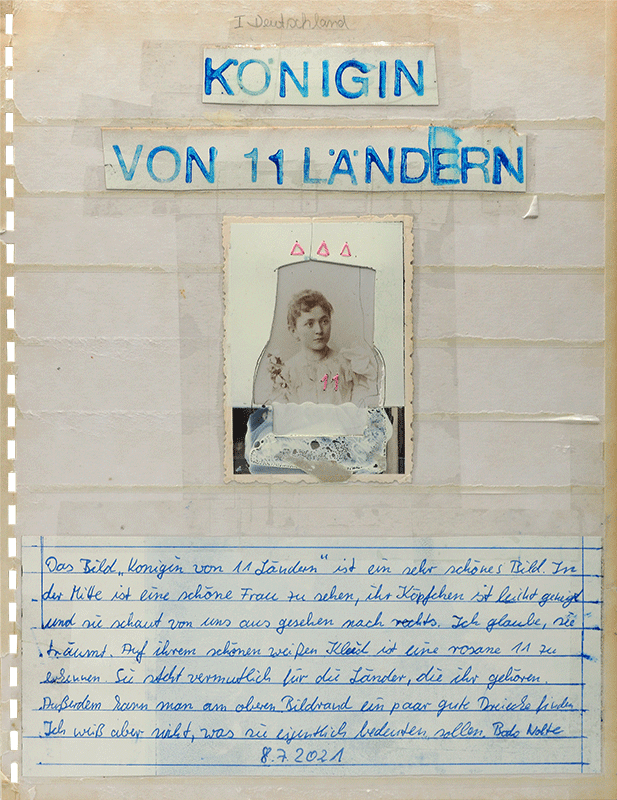 I Deutschland
KÖNIGIN
VON 11 LÄNDERN
11
Das Bild „Königin von 11 Ländern" ist ein sehr schönes Bild. In
der Mitte ist eine schöne Frau zu sehen, ihr Köpfchen ist leicht geneigt
und sie schaut von uns aus gesehen nach rechts. Ich glaube, sie
träumt. Auf ihrem schönen weißen Kleid ist eine rosane 11 zu
erkennen. Sie steht vermutlich für die Länder, die ihr gehören.
Außerdem kann man am oberen Bildrand ein paar gute Dreiecke finden.
Ich weiß aber nicht, was sie eigentlich bedeuten sollen. Bodo Nolte
8.7.2021